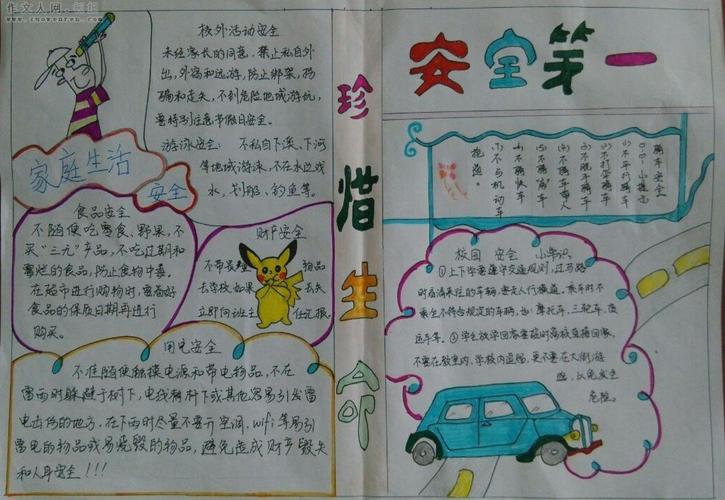 作文人网
www.zuowenren.net
安全第一
珍惜生命
校外活动安全
未经家长的同意，禁止私自外
出，外宿和远游，防止绑架，拐
骗和走失，不到危险地域游玩，
要特别注意节假日安全。
游泳安全： 不私自下溪、下河
等地域游泳，不在水边戏
水，划船，钓鱼等。
家庭生活
安全
食品安全
不随便吃零食、野果，不
买“三无”产品，不吃过期和
霉烂的食品，防止食物中毒。
在超市进行购物时，要看好
食品的保质日期再进行
购买。
财产安全
不带贵重 物品
去学校，如果 丢失
立即向班主 任汇报。
用电安全
不准随便触摸电源和带电物品，不在
雷雨时躲避于树下，电线杆树下或其他容易引发雷
电击伤的地方，在下雨时尽量不要开空调，wifi等易引
雷电的物品或易烧毁的物品，避免造成财产毁失
和人身安全！！！
骑车安全
小提示
(1)不平行骑车
(2)不打伞骑车
(3)不脱手骑车
(4)不骑车带人
(5)不骑病车
(6)不骑快车
(7)不与机动车
抢道。
校园 安全 小常识
①上下学要遵守交通规则，过马路
时看清来往的车辆，要走人行横道。乘车时不
乘坐不符合规定的车辆，如：摩托车，三轮车，货
运车等。②学生放学回家要按时离校直接回家，
不要在教室内，学校内逗留，更不要在大街游
，以免发生
危险。